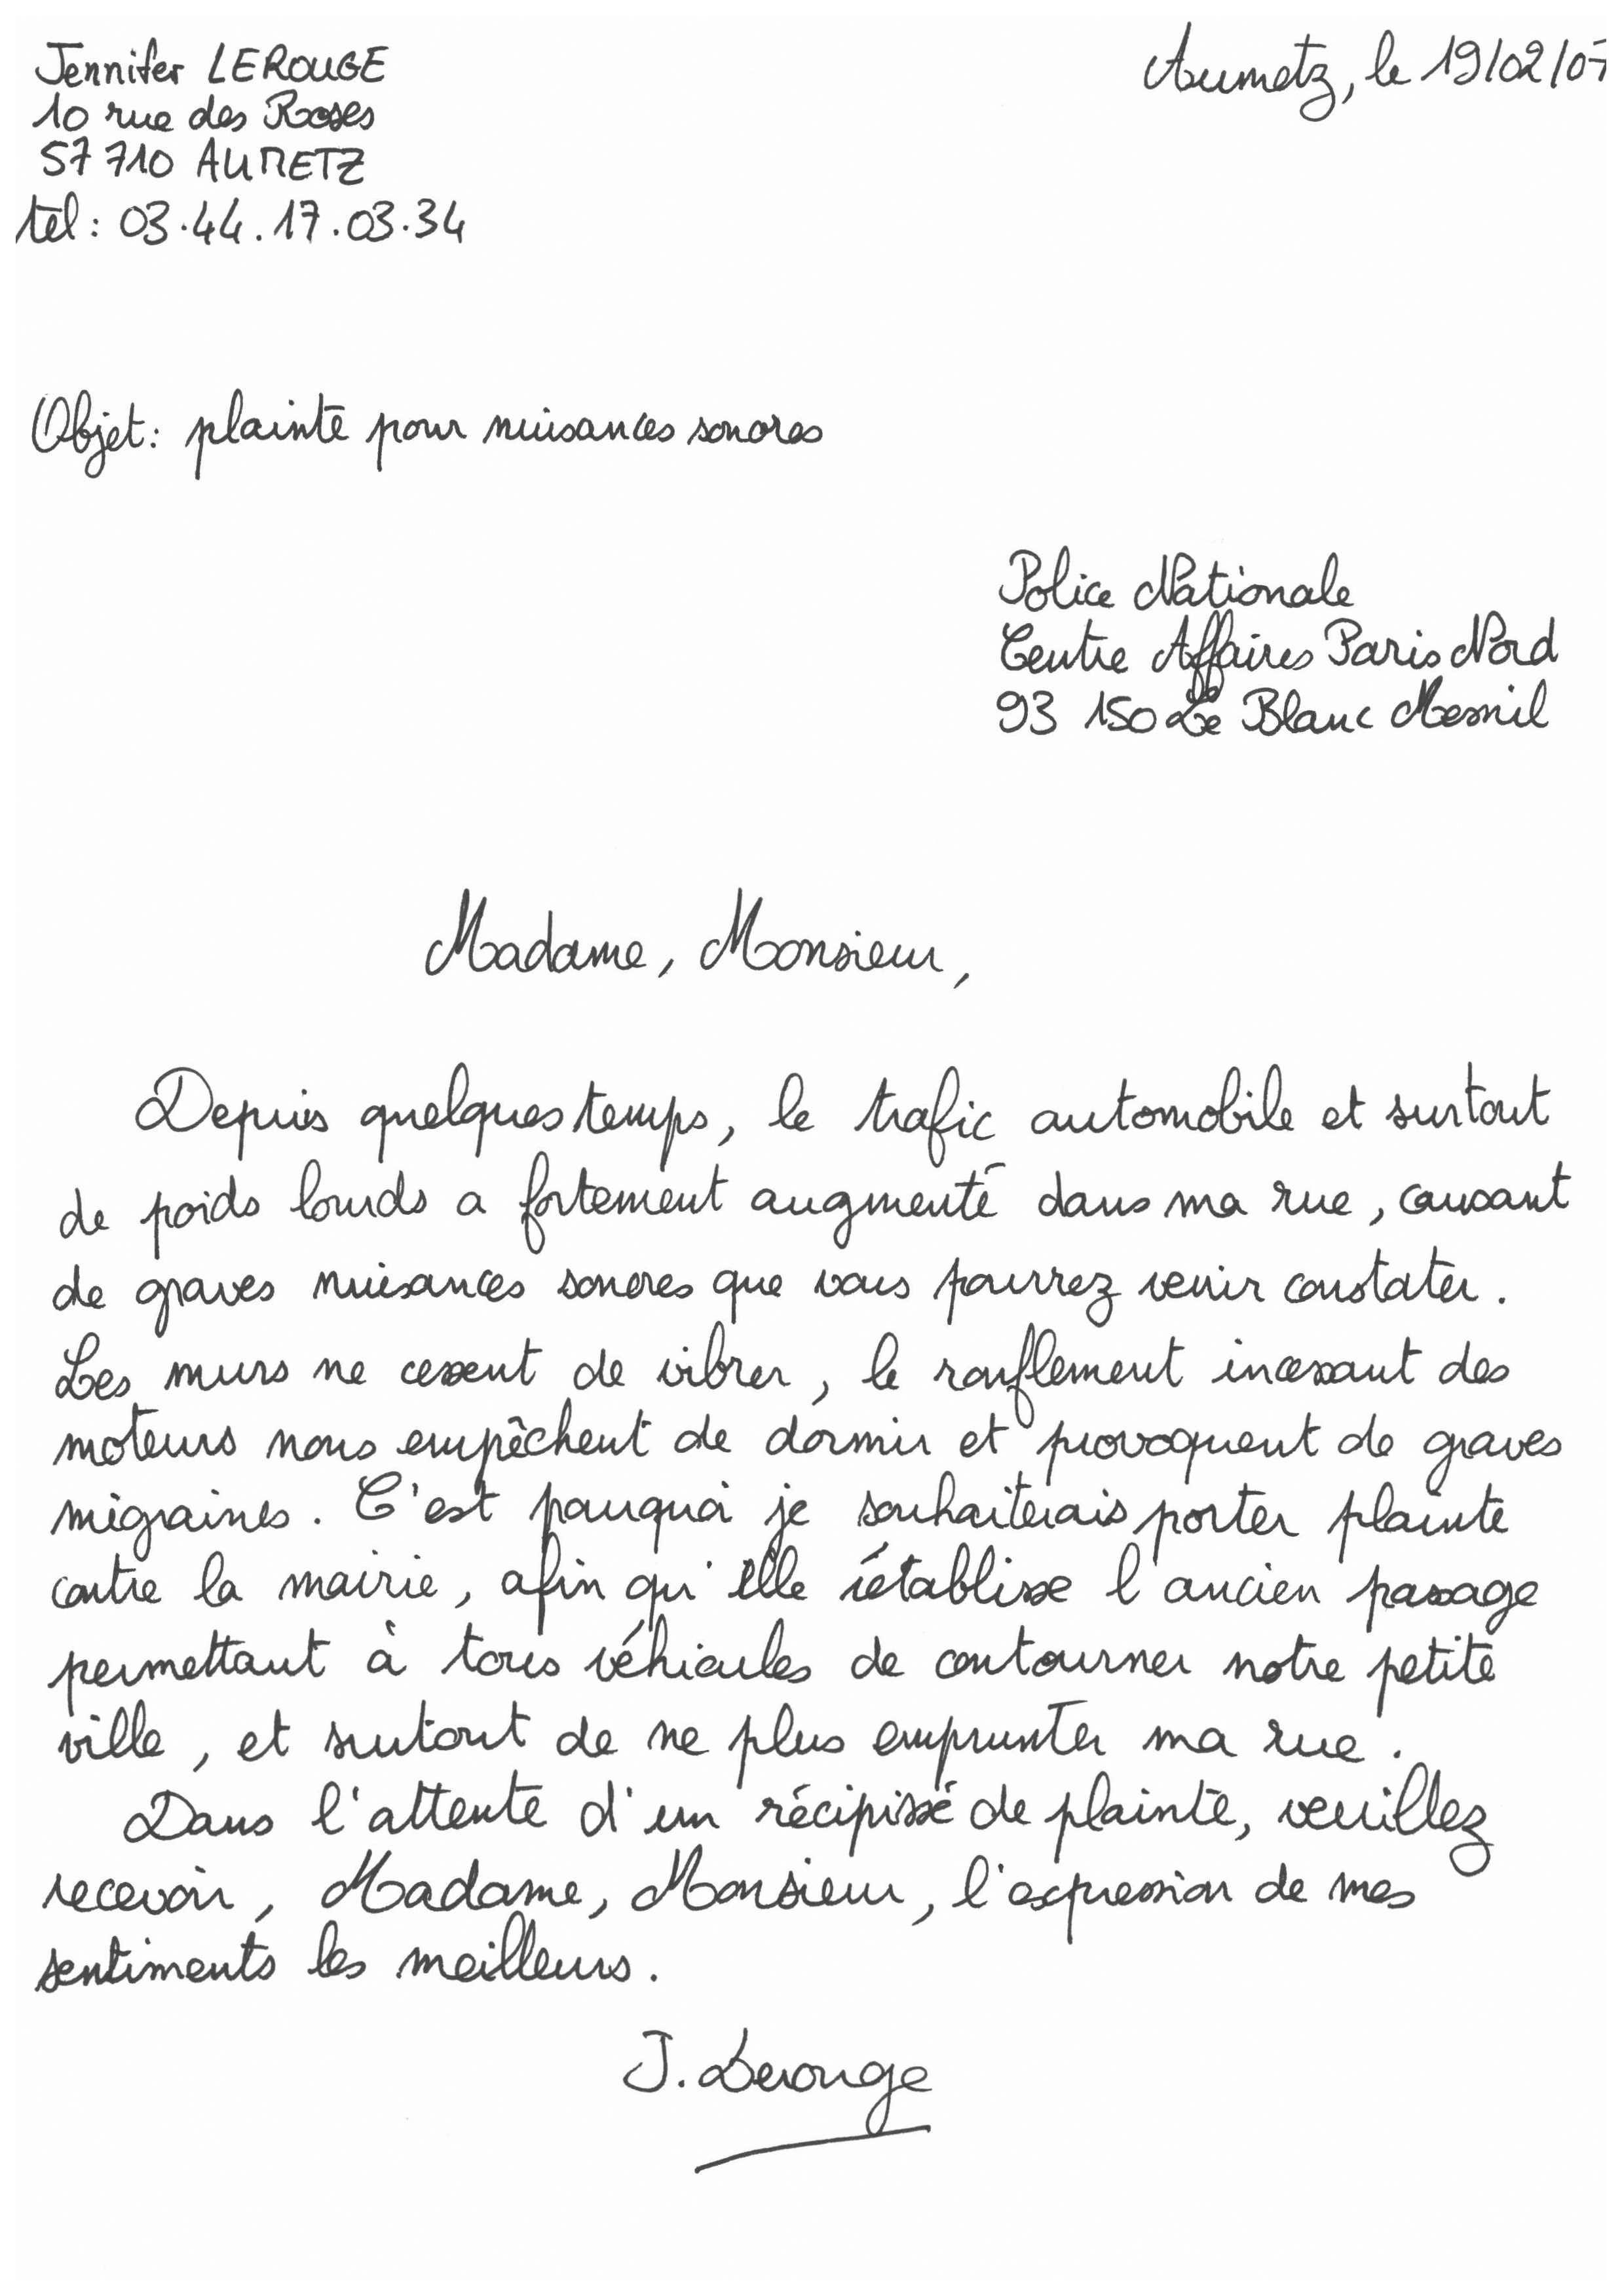 Jennifer LEROUGE
Aumetz, le 19/02/07
10 rue des Roses
57 710 AUMETZ
tel : 03.44.17.03.34
Objet : plainte pour nuisances sonores
Police Nationale
Centre Affaires Paris Nord
93 150 Le Blanc Mesnil
Madame, Monsieur,
Depuis quelques temps, le trafic automobile et surtout
de poids lourds a fortement augmenté dans ma rue, causant
de graves nuisances sonores que vous pourrez venir constater.
Les murs ne cessent de vibrer, le ronflement incessant des
moteurs nous empêchent de dormir et provoquent de graves
migraines. C'est pourquoi je souhaiterais porter plainte
contre la mairie, afin qu'elle rétablisse l'ancien passage
permettant à tous véhicules de contourner notre petite
ville, et surtout de ne plus emprunter ma rue.
Dans l'attente d'un récipissé de plainte, veuillez
recevoir, Madame, Monsieur, l'expression de mes
sentiments les meilleurs.
J. Lerouge